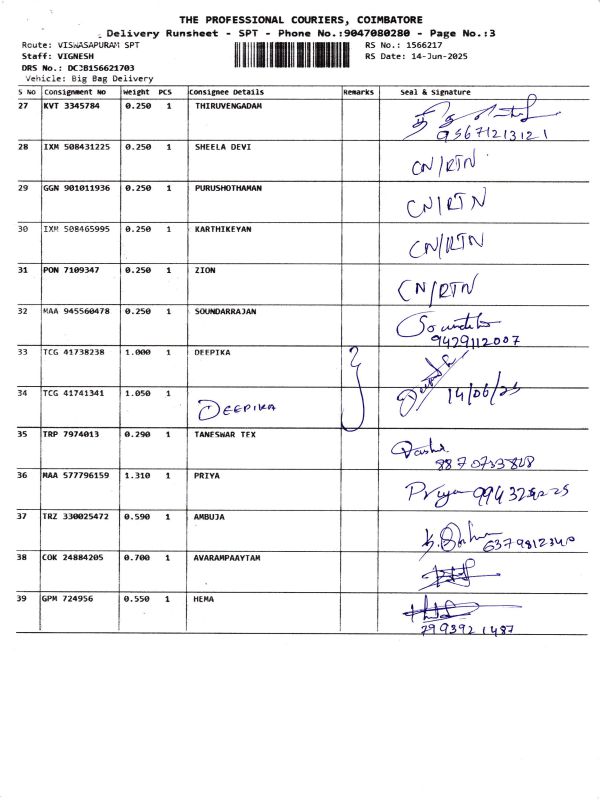 THE PROFESSIONAL COURIERS, COIMBATORE
Delivery Runsheet - SPT - Phone No.:9047080280 - Page No.:3
Route: VISWASAPURAM SPT RS No.: 1566217
Staff: VIGNESH RS Date: 14-Jun-2025
DRS No.: DCJB156621703
Vehicle: Big Bag Delivery
S No Consignment No Weight PCS Consignee Details Remarks Seal & Signature
27 KVT 3345784 0.250 1 THIRUVENGADAM
9567121312 1
28 IXM 508431225 0.250 1 SHEELA DEVI CN/RTN
29 GGN 901011936 0.250 1 PURUSHOTHAMAN CN/RTN
30 IXM 508465995 0.250 1 KARTHIKEYAN CN/RTN
31 PON 7109347 0.250 1 ZION CN/RTN
32 MAA 945560478 0.250 1 SOUNDARRAJAN
9429112007
33 TCG 41738238 1.000 1 DEEPIKA
34 TCG 41741341 1.050 1 DEEPIKA 14/06/25
35 TRP 7974013 0.290 1 TANESWAR TEX
36 MAA 577796159 1.310 1 PRIYA Priya
37 TRZ 330025472 0.590 1 AMBUJA
6379812340
38 COK 24884205 0.700 1 AVARAMPAAYTAM
39 GPM 724956 0.550 1 HEMA
7993921487